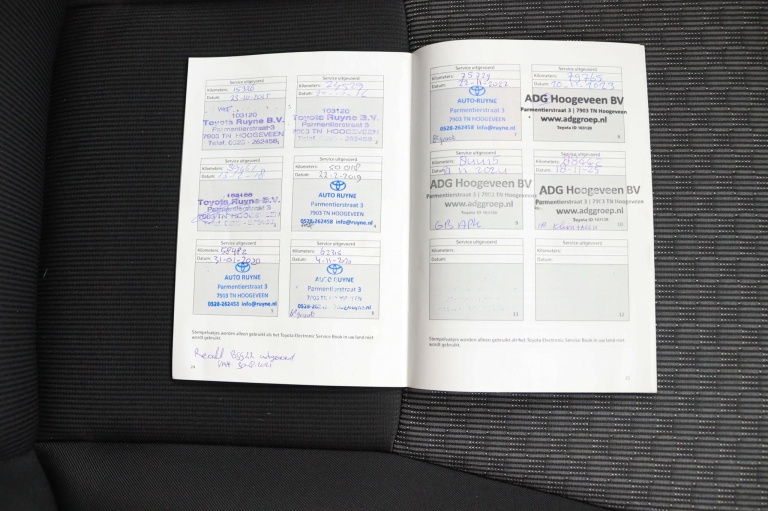 Service uitgevoerd
Kilometers: 15320
Datum: 23-10-2015
103120
Toyota Ruyne B.V.
Parmentierstraat-3
7903 TN HOOGEVEEN
Telef. 0528 - 262458
Service uitgevoerd
Kilometers:
Datum:
103120
Toyota Ruyne B.V.
Parmentierstraat-3
7903 TN HOOGEVEEN
Telef. 0528 - 262458
Service uitgevoerd
Kilometers:
Datum:
Toyota Ruyne B.V.
Parmentierstraat-3
Service uitgevoerd
Kilometers: 50 018
Datum: 22-2-2019
AUTO RUYNE
Parmentierstraat 3
7903 TN HOOGEVEEN
0528-262458 info@ruyne.nl
4
Service uitgevoerd
Kilometers: 58482
Datum: 31-01-2020
AUTO RUYNE
Parmentierstraat 3
7903 TN HOOGEVEEN
0528-262458 info@ruyne.nl
5
Service uitgevoerd
Kilometers: 62316
Datum: 4-11-2020
AUTO RUYNE
Parmentierstraat 3
7903 TN HOOGEVEEN
0528-262458 info@ruyne.nl
6
Stempelvakjes worden alleen gebruikt als het Toyota Electronic Service Book in uw land niet
wordt gebruikt.
Recall uitgevoerd
24
Service uitgevoerd
Kilometers: 75729
Datum:
AUTO-RUYNE
Parmentierstraat 3
7903 TN HOOGEVEEN
0528-262458 info@ruyne.nl
Service uitgevoerd
Kilometers: 79765
Datum: 20-11-2023
ADG Hoogeveen BV
Parmentierstraat 3 | 7903 TN Hoogeveen
www.adggroep.nl
Toyota ID 103120
8
Service uitgevoerd
Kilometers:
Datum:
ADG Hoogeveen BV
Parmentierstraat 3 | 7903 TN Hoogeveen
www.adggroep.nl
Toyota ID 103120
9
Service uitgevoerd
Kilometers:
Datum: 18-11-25
ADG Hoogeveen BV
Parmentierstraat 3 | 7903 TN Hoogeveen
www.adggroep.nl
Toyota ID 103120
10
Service uitgevoerd
Kilometers:
Datum:
11
Service uitgevoerd
Kilometers:
Datum:
12
Stempelvakjes worden alleen gebruikt als het Toyota Electronic Service Book in uw land niet
wordt gebruikt.
25